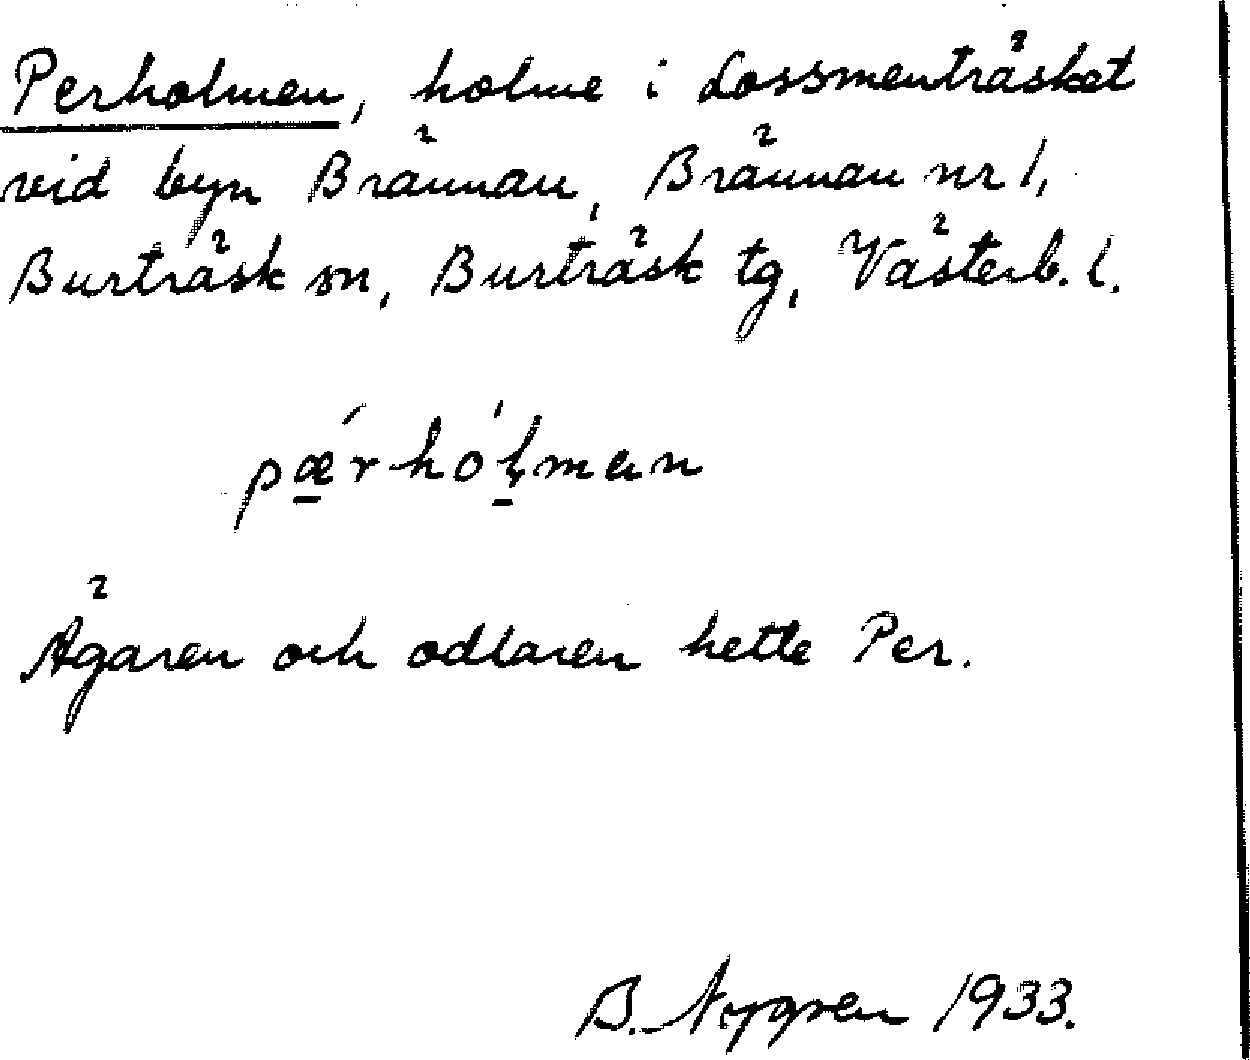 Perholmen, holme i Lossmenträsket
vid byn Brännan, Brännan nr 1,
Burträsk sn, Burträsk tg, Västerb. l.
pǽrhól̥man
Ägaren och odlaren hette Per.
B. Nygren 1933.